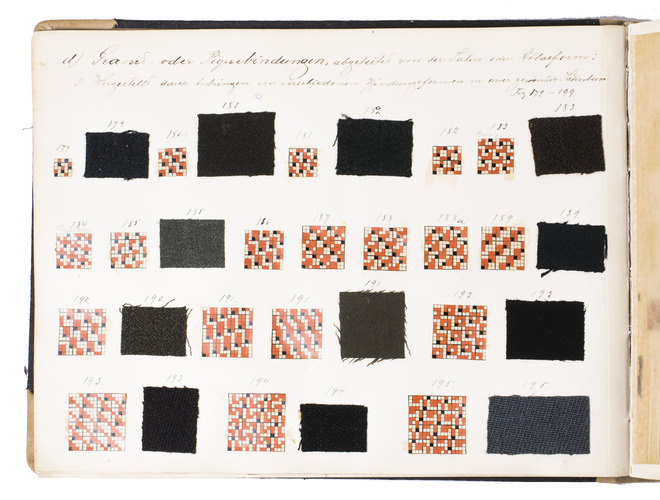 d) Granit oder Piquebindungen, abgeleitet von der Satin oder Atlasform:
von verschiedenen Bindungsformen in einer
Fig 179 – 199
179 179 180 180 181 182 182 183 183
184 185 185 186 187 188 188a 189 189
190 190 191 191 191 192 192
193 193 194 194 195 195